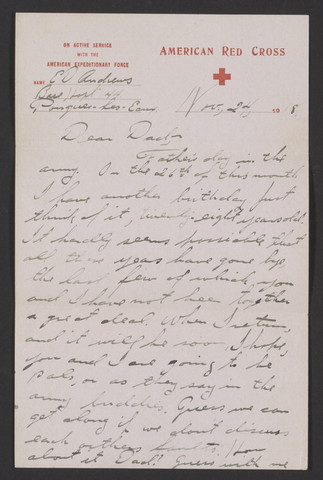 ON ACTIVE SERVICE
WITH THE
AMERICAN EXPEDITIONARY FORCE
AMERICAN RED CROSS
NAME E A Andrews
Base Hosp 44
Pougues-les-Eaux
Nov, 24 1918
Dear Dad,
Father's day in the
army. On the 26th of this month
I have another birthday. Just
think of it, twenty-eight years old.
It hardly seems possible that
all those years have gone by,
the last few of which, you
and I have not bee together
a great deal. When I return,
and it will be soon, I hope,
you and I are going to be
pals, or as they say in the
army buddies. Guess we can
get along if we don't discuss
each others faults. How
about it Dad? Guess with me